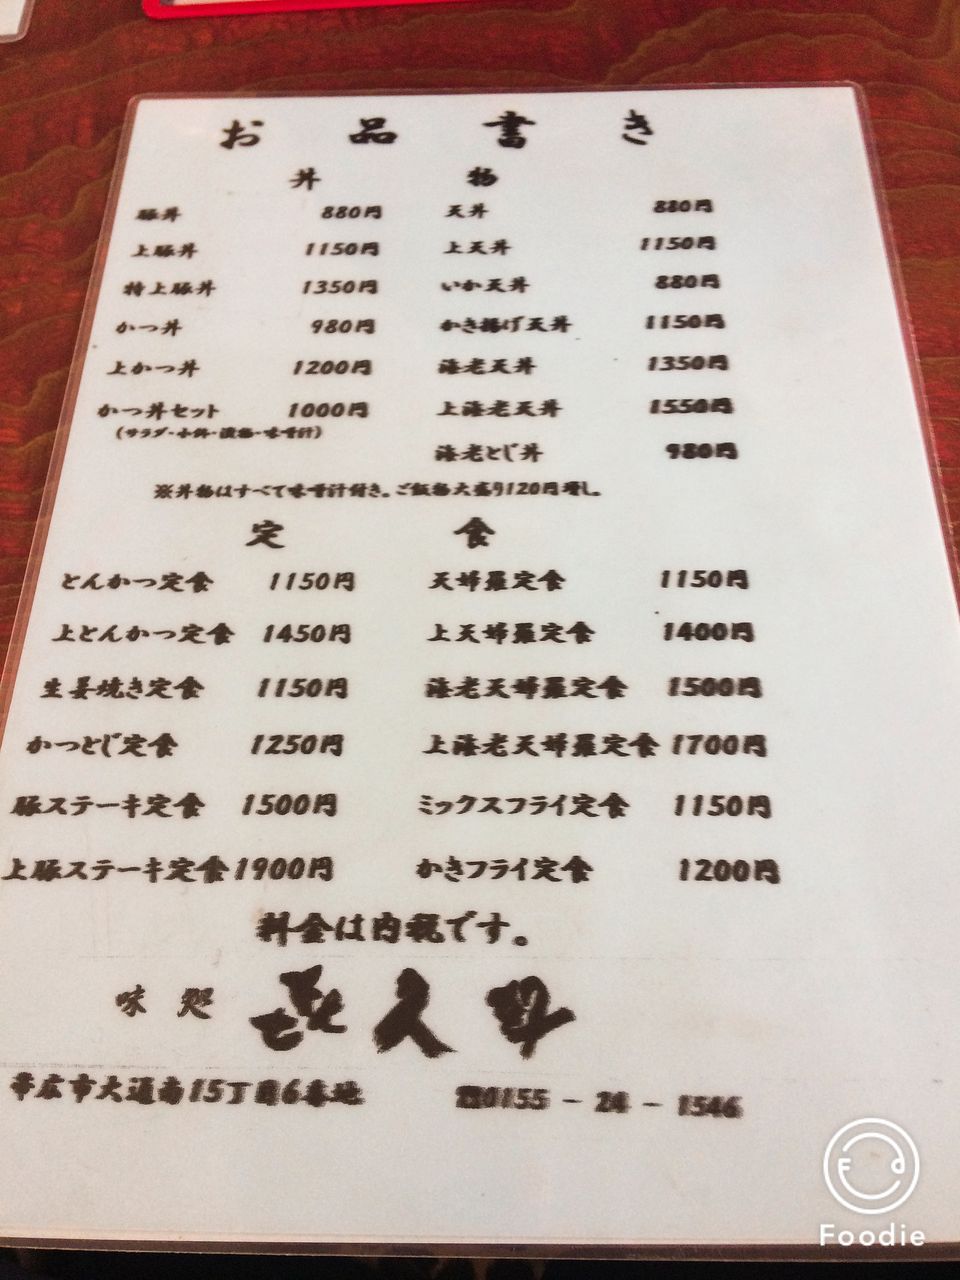 お品書き
丼物
豚丼 880円 天丼 880円
上豚丼 1150円 上天丼 1150円
特上豚丼 1350円 いか天丼 880円
かつ丼 980円 かき揚げ天丼 1150円
上かつ丼 1200円 海老天丼 1350円
かつ丼セット 1000円 上海老天丼 1550円
(サラダ・小鉢・漬物・味噌汁)
海老とじ丼 980円
※丼物はすべて味噌汁付き。ご飯物大盛り120円増し。
定食
とんかつ定食 1150円 天婦羅定食 1150円
上とんかつ定食 1450円 上天婦羅定食 1400円
生姜焼き定食 1150円 海老天婦羅定食 1500円
かつとじ定食 1250円 上海老天婦羅定食 1700円
豚ステーキ定食 1500円 ミックスフライ定食 1150円
上豚ステーキ定食 1900円 かきフライ定食 1200円
料金は内税です。
味処 㐂久丼
帯広市大通南15丁目6番地 ☎0155-24-1546
Foodie